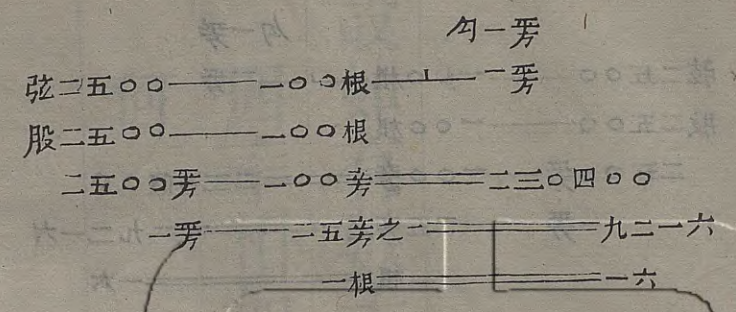 勾一平方
弦二五〇〇——一〇〇根—⊥—一平方
股二五〇〇——一〇〇根
二五〇〇平方——一〇〇立方══二三〇四〇〇
一平方——二五立方之一══九二一六
一根══一六